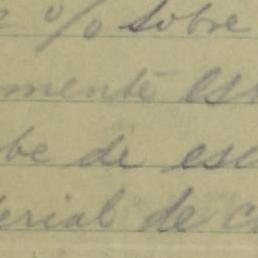 % sobre
mente es
be de esc
erial de c